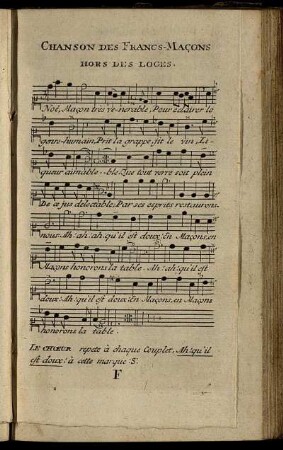 CHANSON DES FRANCS-MAÇONS
HORS DES LOGES.
Noé, Maçon très vé-nerable, Pour éclairer le
genre-humain, Prit la grappe, fit le vin, Li-
queur aimable - ble. Que tout verre soit plein
De ce jus délectable; Par ses esprits restaurons
nous. Ah! ah! ah! qu'il est doux! En Maçons, en
Maçons honorons la table. Ah! ah! qu'il est
doux! Ah! qu'il est doux! En Maçons, en Maçons
honorons la table.
LE CHŒUR répete à chaque Couplet, Ah! qu'il
est doux! à cette marque :S:
F